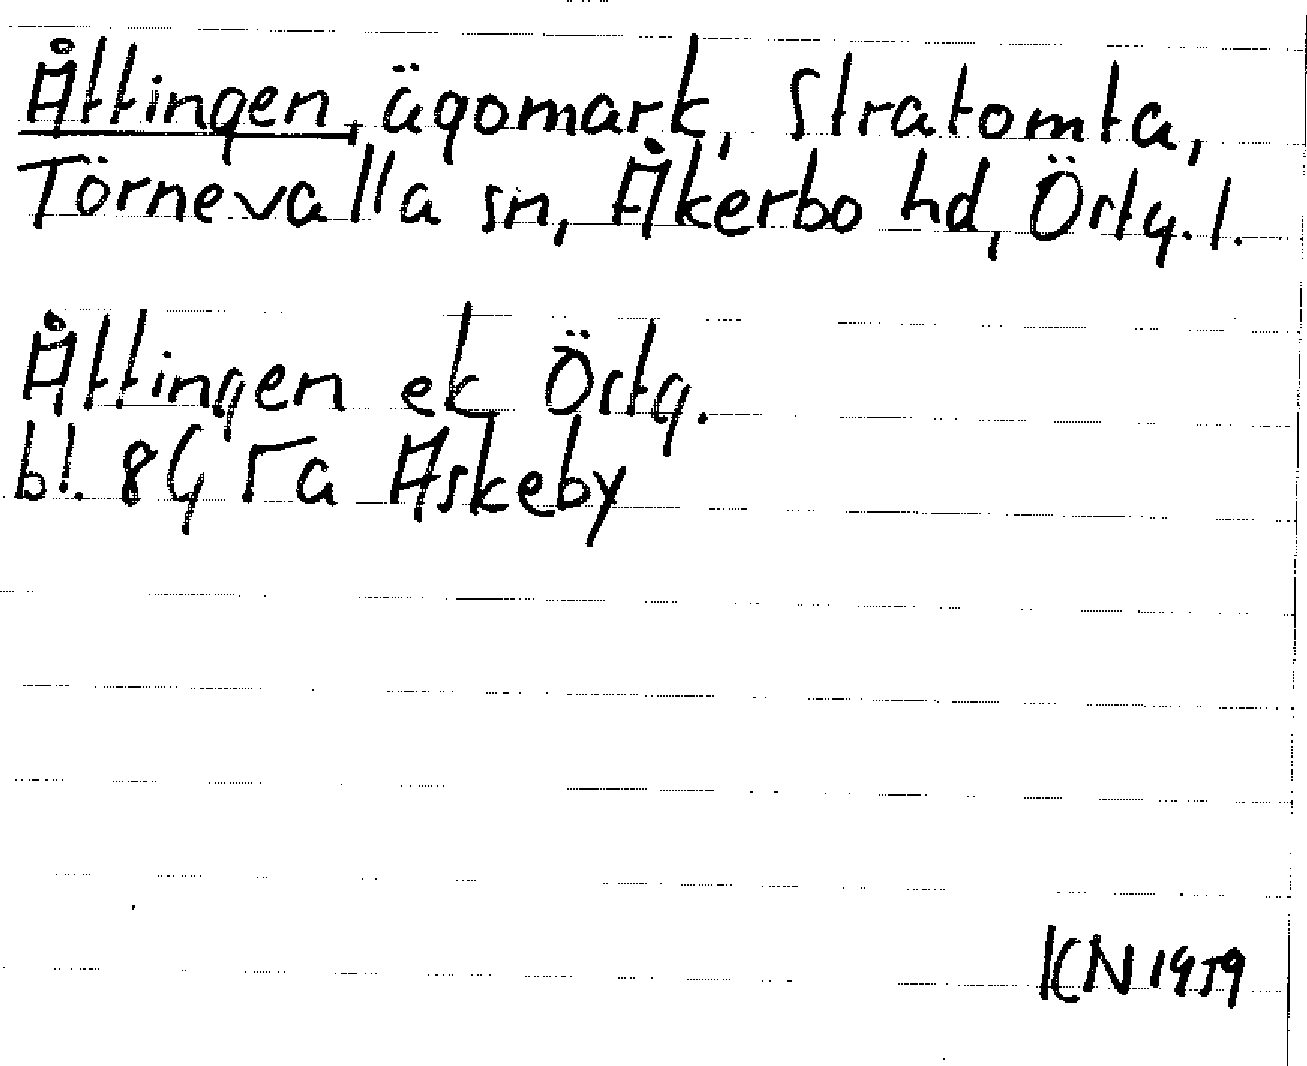 Åttingen, ägomark, Stratomta,
Törnevalla sn, Åkerbo hd, Östg. l.
Åttingen ek Östg.
bl. 8G 5a Askeby
KN 1959